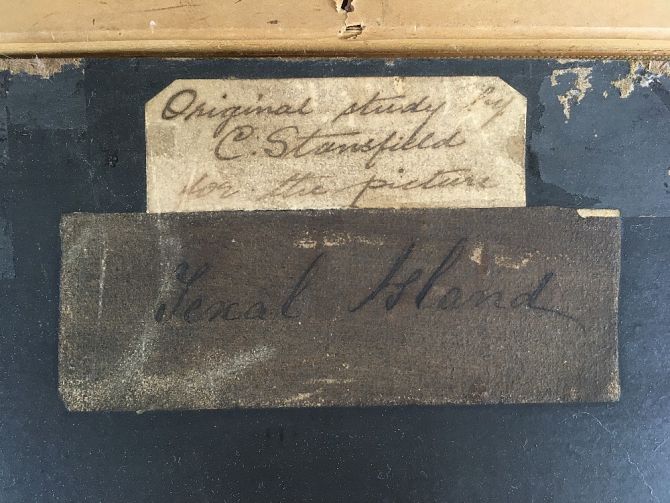 Original study by
C. Stansfield
for the picture
Texal Island